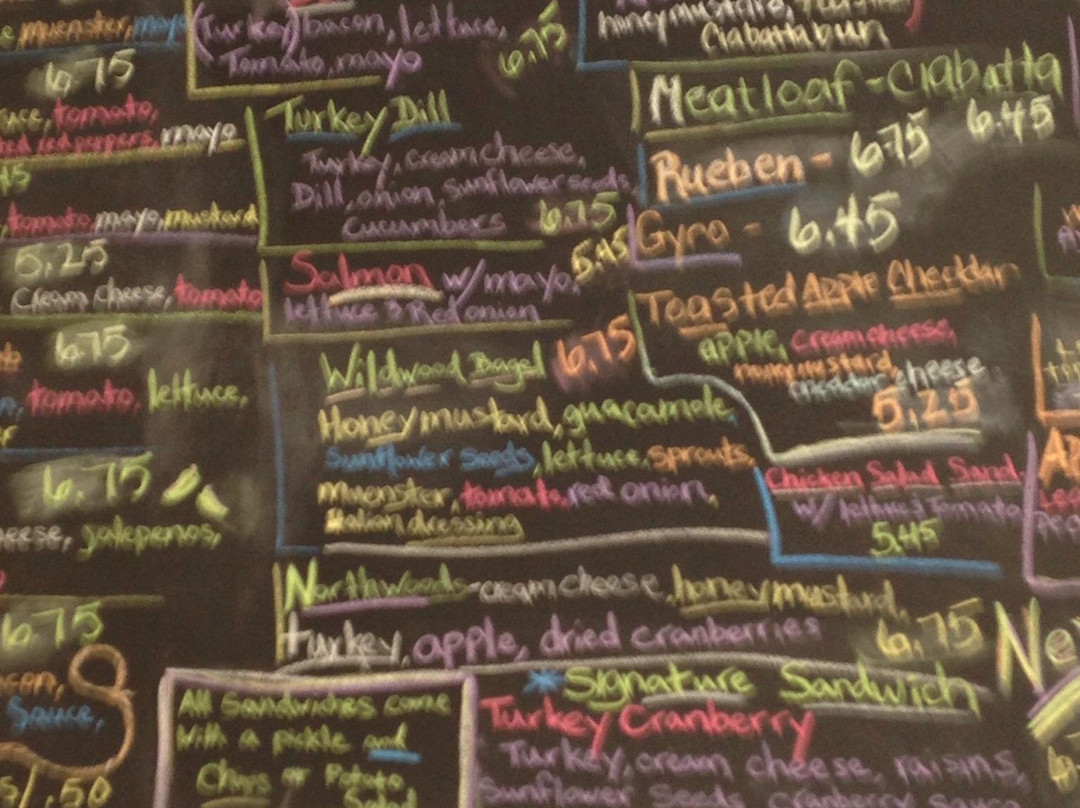 muenster, mayo
6.75
tomato,
red peppers, mayo
tomato, mayo, mustard
5.25
Cream cheese, tomato
6.75
tomato, lettuce,
6.75
jalepenos,
6.75
Sauce,
.50
(Turkey) bacon, lettuce,
Tomato, mayo
6.75
Turkey Dill
Turkey, cream cheese,
Dill, onion, sunflower seeds,
cucumbers 6.75
Salmon w/mayo, 5.45
lettuce & Red onion
Wildwood Bagel 6.75
Honey mustard, guacamole,
Sunflower seeds, lettuce, sprouts,
muenster, tomato, red onion,
Italian dressing
Northwoods - cream cheese, honey mustard,
turkey, apple, dried cranberries 6.75
All Sandwiches come
With a pickle and
Chips or Potato
Salad
*Signature Sandwich
Turkey Cranberry
Turkey, cream cheese, raisins,
Sunflower seeds, cranberry
honey mustard,
Ciabatta bun
Meatloaf - Ciabatta
6.45
Rueben - 6.75
Gyro - 6.45
Toasted Apple Cheddar
apple, cream cheese,
cheddar cheese
5.25
Chicken Salad Sand.
w/ lettuce Tomato
5.45